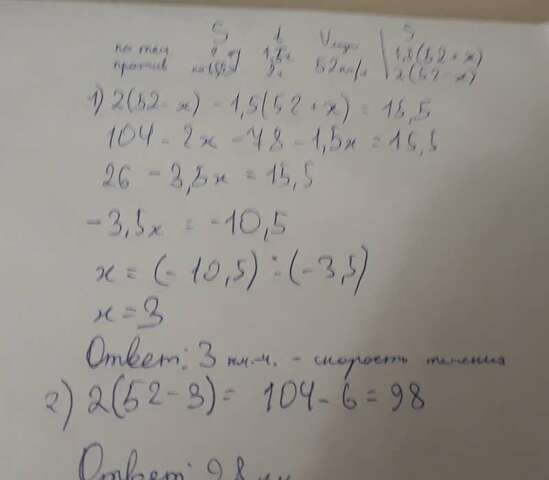 S t Vлодк S
по теч. ? 1,5ч 1,5(52+x)
против на 15,5 2ч 52км/ч 2(52-x)
1) 2(52-x) - 1,5(52+x) = 15,5
104 - 2x - 78 - 1,5x = 15,5
26 - 3,5x = 15,5
-3,5x = -10,5
x = (-10,5) : (-3,5)
x = 3
Ответ: 3 км.ч. - скорость течения
2) 2(52-3) = 104 - 6 = 98
Ответ: 98 км